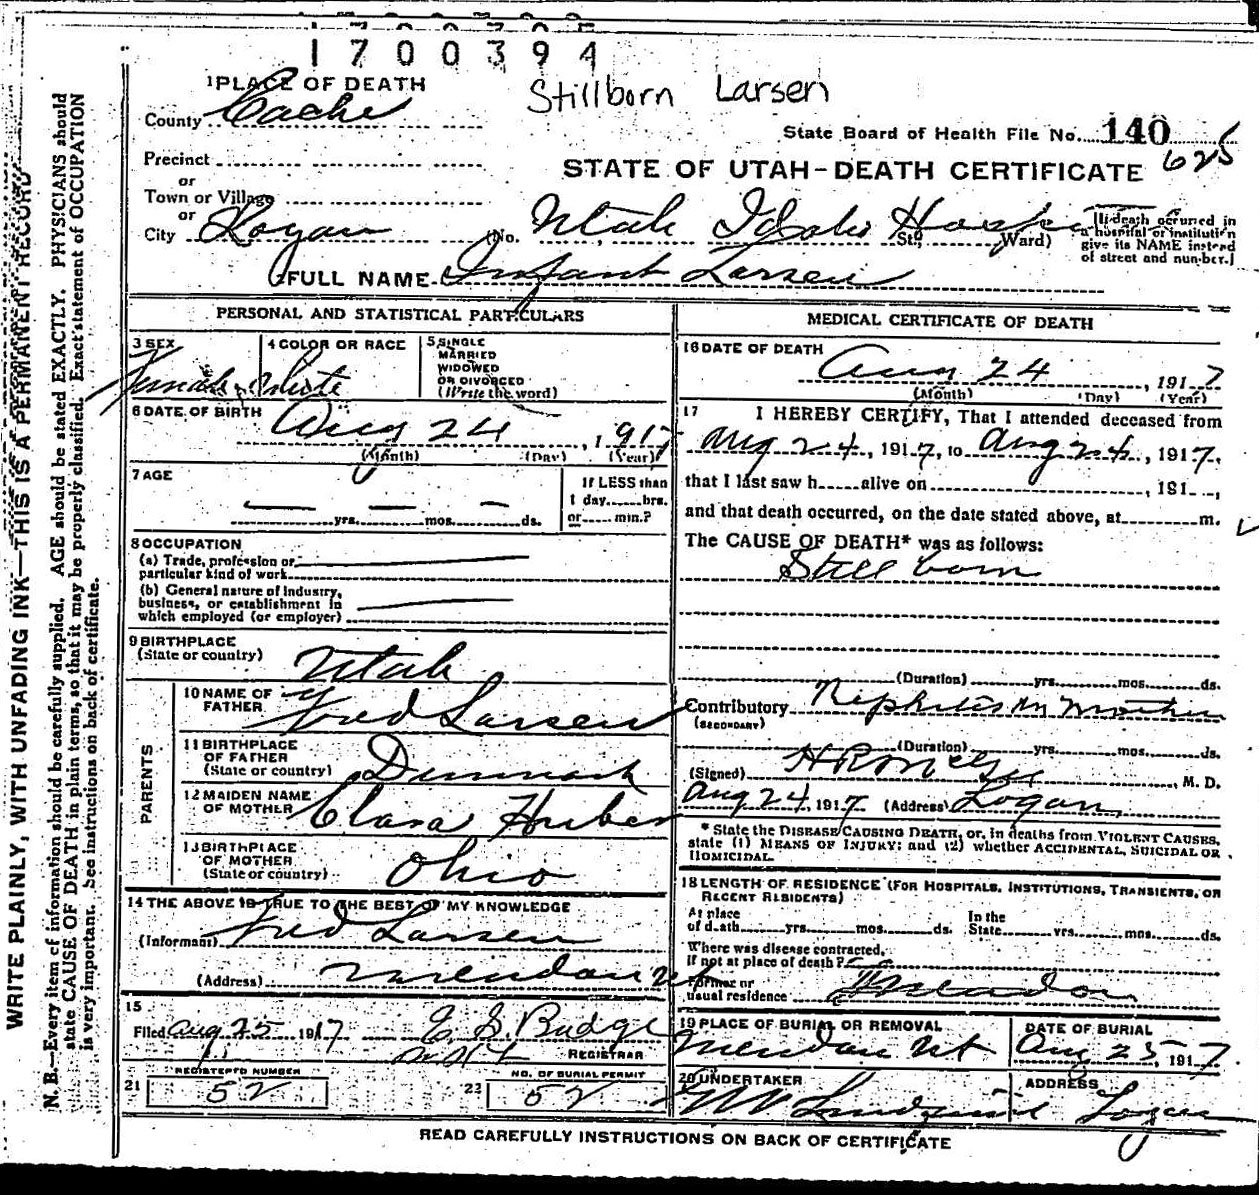 1700394
Stillborn Larsen
1 PLACE OF DEATH
County Cache
State Board of Health File No. 140
625
Precinct
STATE OF UTAH-DEATH CERTIFICATE
or
Town or Village
or
City Logan (No. Utah Idaho Hospital St; Ward)
[If death occurred in
a hospital or institution
give its NAME instead
of street and number.]
FULL NAME Infant Larsen
PERSONAL AND STATISTICAL PARTICULARS
3 SEX
Female
4 COLOR OR RACE
White
5 SINGLE
MARRIED
WIDOWED
OR DIVORCED
(Write the word)
6 DATE OF BIRTH
Aug 24, 1917
(Month) (Day) (Year)
7 AGE
— — —
yrs. mos. ds.
If LESS than
1 day hrs.
or min.?
8 OCCUPATION
(a) Trade, profession or
particular kind of work
(b) General nature of Industry,
business, or establishment in
which employed (or employer)
9 BIRTHPLACE
(State or country)
Utah
PARENTS
10 NAME OF
FATHER
Fred Larsen
11 BIRTHPLACE
OF FATHER
(State or country)
Denmark
12 MAIDEN NAME
OF MOTHER
Clara Huber
13 BIRTHPLACE
OF MOTHER
(State or country)
Ohio
14 THE ABOVE IS TRUE TO THE BEST OF MY KNOWLEDGE
(Informant) Fred Larsen
(Address) Mendon Ut
15
Filed Aug 25 1917 E S. Budge
REGISTRAR
REGISTERED NUMBER
21 52
NO. OF BURIAL PERMIT
22 52
MEDICAL CERTIFICATE OF DEATH
16 DATE OF DEATH
Aug 24, 1917
(Month) (Day) (Year)
17 I HEREBY CERTIFY, That I attended deceased from
Aug 24, 1917, to Aug 24, 1917,
that I last saw h alive on , 191 ,
and that death occurred, on the date stated above, at m.
The CAUSE OF DEATH* was as follows:
Still born
(Duration) yrs. mos. ds.
Contributory Nephritis in Mother
(SECONDARY)
(Duration) yrs. mos. ds.
(Signed) , M. D.
Aug 24, 1917 (Address) Logan
* State the DISEASE CAUSING DEATH, or, in deaths from VIOLENT CAUSES,
state (1) MEANS OF INJURY; and (2) whether ACCIDENTAL, SUICIDAL OR
HOMICIDAL.
18 LENGTH OF RESIDENCE (FOR HOSPITALS, INSTITUTIONS, TRANSIENTS, OR
RECENT RESIDENTS)
At place
of death yrs. mos. ds.
In the
State yrs. mos. ds.
Where was disease contracted,
if not at place of death?
Former or
usual residence
19 PLACE OF BURIAL OR REMOVAL
Mendon Ut
DATE OF BURIAL
Aug 25, 1917
20 UNDERTAKER
ADDRESS
Logan
READ CAREFULLY INSTRUCTIONS ON BACK OF CERTIFICATE
WRITE PLAINLY, WITH UNFADING INK—THIS IS A PERMANENT RECORD
N. B.—Every item of information should be carefully supplied. AGE should be stated EXACTLY. PHYSICIANS should
state CAUSE OF DEATH in plain terms, so that it may be properly classified. Exact statement of OCCUPATION
is very important. See instructions on back of certificate.